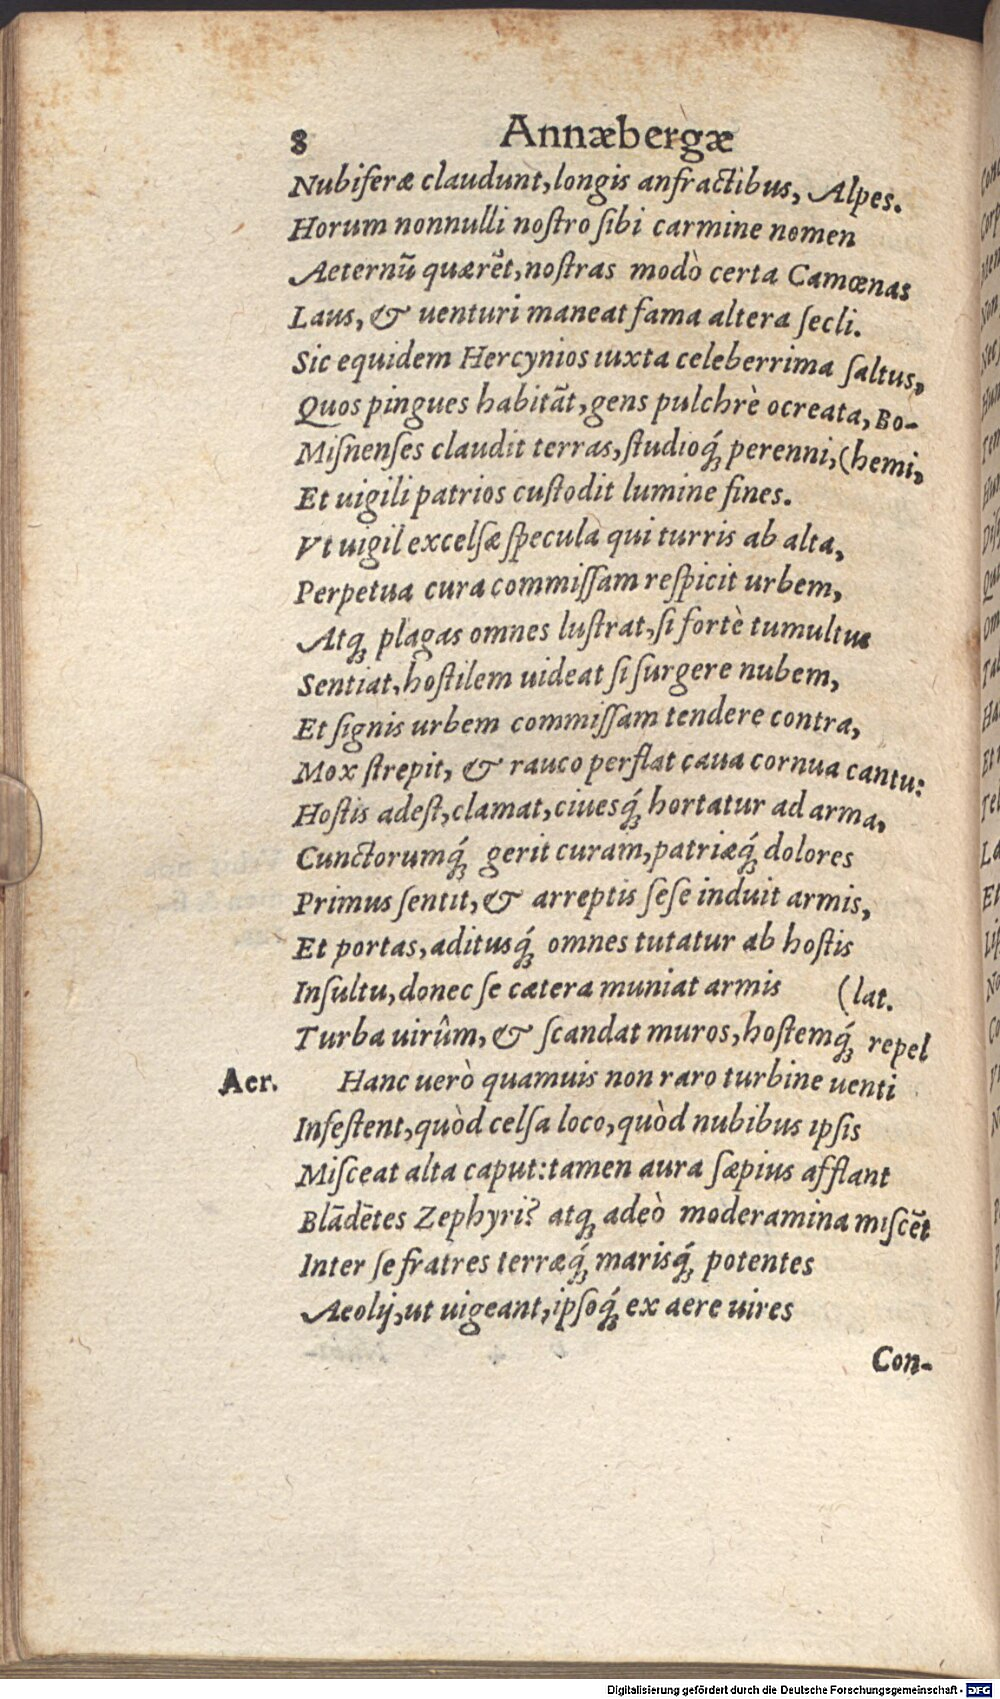 8 Annæbergæ
Nubiferæ claudunt, longis anfractibus, Alpes.
Horum nonnulli noſtro ſibi carmine nomen
Aeternū quærēt, noſtras modò certa Camœnas
Laus, & uenturi maneat fama altera ſecli.
Sic equidem Hercynios iuxta celeberrima ſaltus,
Quos pingues habitāt, gens pulchrè ocreata, Bo-
Miſnenſes claudit terras, ſtudioq́; perenni, (hemi,
Et uigili patrios cuſtodit lumine fines.
Vt uigil excelſæ ſpecula qui turris ab alta,
Perpetua cura commiſſam reſpicit urbem,
Atq; plagas omnes luſtrat, ſi fortè tumultus
Sentiat, hoſtilem uideat ſi ſurgere nubem,
Et ſignis urbem commiſſam tendere contra,
Mox ſtrepit, & rauco perflat caua cornua cantu:
Hoſtis adeſt, clamat, ciuesq́; hortatur ad arma,
Cunctorumq́; gerit curam, patriæq́; dolores
Primus ſentit, & arreptis ſeſe induit armis,
Et portas, aditusq́; omnes tutatur ab hoſtis
Inſultu, donec ſe cætera muniat armis (lat.
Turba uirûm, & ſcandat muros, hoſtemq́; repel
Aer. Hanc uerò quamuis non raro turbine uenti
Infeſtent, quòd celſa loco, quòd nubibus ipſis
Miſceat alta caput: tamen aura ſæpius afflant
Blādētes Zephyri? atq; adeò moderamina miſcēt
Inter ſe fratres terræq́; marisq́; potentes
Aeolij, ut uigeant, ipſoq́; ex aere uires
Con-
Digitalisierung gefördert durch die Deutsche Forschungsgemeinschaft - DFG